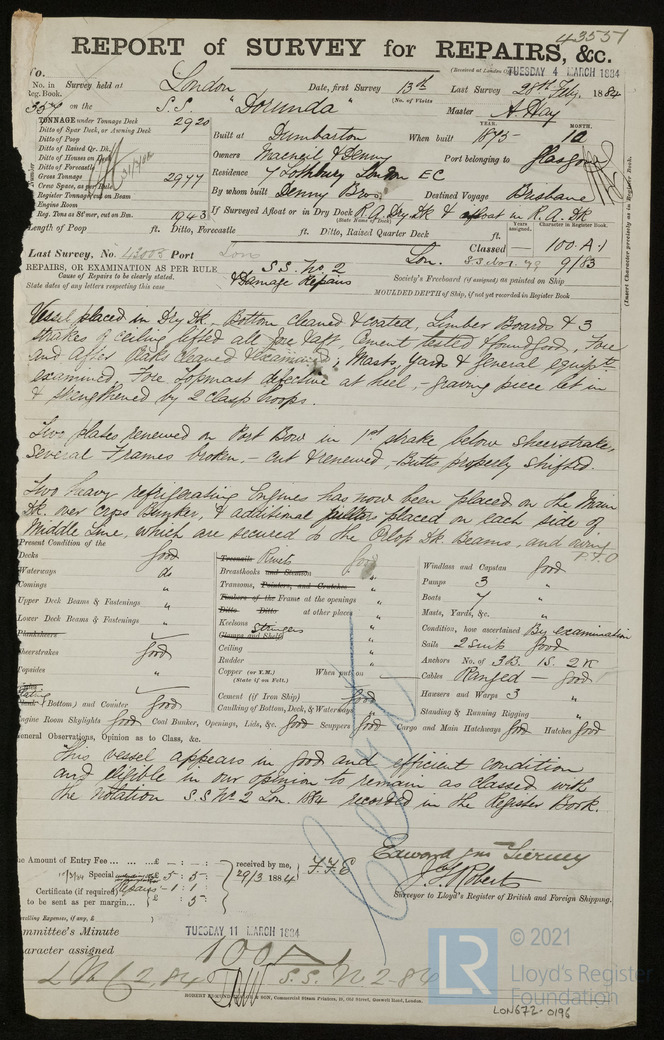 43551
REPORT of SURVEY for REPAIRS, &c.
(Received at London TUESDAY 4 MARCH 1884
No. in Survey held at London Date, first Survey 13th Last Survey 28th Feby. 1884
Reg. Book. (No. of Visits
on the S.S. "Dorunda" Master A. Hay
TONNAGE under Tonnage Deck 2920
Ditto of Spar Deck, or Awning Deck
Ditto of Poop
Ditto of Raised Qr. Dk.
Ditto of Houses on Deck
Ditto of Forecastle
Gross Tonnage 2977
Crew Space, as per Rule
Register Tonnage on Beam
Engine Room
Reg. Tons as St'mer, cut on Bm. 1943
YEAR. MONTH.
Built at Dumbarton When built 1875 - 12
Owners Macneil & Denny Port belonging to Glasgow
Residence 7 Lothbury London EC
By whom built Denny Bros. Destined Voyage Brisbane
If Surveyed Afloat or in Dry Dock R. A. Dry Dk & afloat in R. A. Dk
(State Name of Dock)
Length of Poop ft. Ditto, Forecastle ft. Ditto, Raised Quarter Deck ft.
Years assigned. Character in Register Book.
(Insert Character precisely as in Register Book.
Last Survey, No. Port Lon Classed 100 A.1
Lon. 9/83
REPAIRS, OR EXAMINATION AS PER RULE S.S. No. 2
Cause of Repairs to be clearly stated. & Damage Repairs
State dates of any letters respecting this case
Society's Freeboard (if assigned) as painted on Ship
MOULDED DEPTH of Ship, if not yet recorded in Register Book
Vessel placed in Dry Dk. Bottom cleaned & coated, Limber Boards & 3
strakes of ceiling lifted all fore & aft. Cement tested & found good, Fore
and After Peaks cleaned & examined; Masts, Yards & general equipt.
examined, Fore Topmast defective at heel, - graving piece let in
& strengthened by 2 clasp hoops.
Two plates renewed on Port Bow in 1st strake below sheerstrake,
several Frames broken, - cut & renewed, Butts properly shifted.
Two heavy refrigerating Engines has now been placed on the Main
Dk. over cross Bunker, & additional pillars placed on each side of
Middle Line, which are secured to the Orlop Dk. Beams, and owing
P.T.O
Present Condition of the
Decks Good
Waterways do
Comings "
Upper Deck Beams & Fastenings "
Lower Deck Beams & Fastenings "
Planksheers
Sheerstrakes Good
Topsides "
Plating (Bottom) and Counter Good
Treenails Rivets Good
Breasthooks and Stemson "
Transoms, Pointers, and Crutches "
Timbers of the Frame at the openings "
Ditto Ditto at other places "
Keelsons "
Clamps and Shelfs Stringers "
Ceiling "
Rudder "
Copper (or Y.M.) When put on
(State if on Felt.)
Cement (if Iron Ship) Good
Caulking of Bottom, Deck, & Waterways "
Windlass and Capstan Good
Pumps 3 "
Boats 7 "
Masts, Yards, &c. "
Condition, how ascertained By examination
Sails 2 suits Good
Anchors No. of 3 B. 1 S. 2 K
Cables Ranged - Good
Hawsers and Warps 3 "
Standing & Running Rigging "
Engine Room Skylights Good Coal Bunker, Openings, Lids, &c. Good Scuppers Good Cargo and Main Hatchways Good Hatches Good
General Observations, Opinion as to Class, &c.
This vessel appears in good and efficient condition
and eligible in our opinion to remain as classed with
the Notation S.S. No. 2 Lon. 1884 recorded in the Register Book.
The Amount of Entry Fee £ : :
Special £ 5 : 5 :
Repairs - 1 : 1 :
Certificate (if required)
to be sent as per margin £ : 5 :
Travelling Expenses, if any, £
received by me,
29/3 1884
Edward Jn. Tierney
Roberts
Surveyor to Lloyd's Register of British and Foreign Shipping.
Committee's Minute TUESDAY 11 MARCH 1884
Character assigned 100 A1
L M C 2.84 S.S. No 2-84
Lon 672-0196
LR © 2021
Lloyd's Register
Foundation